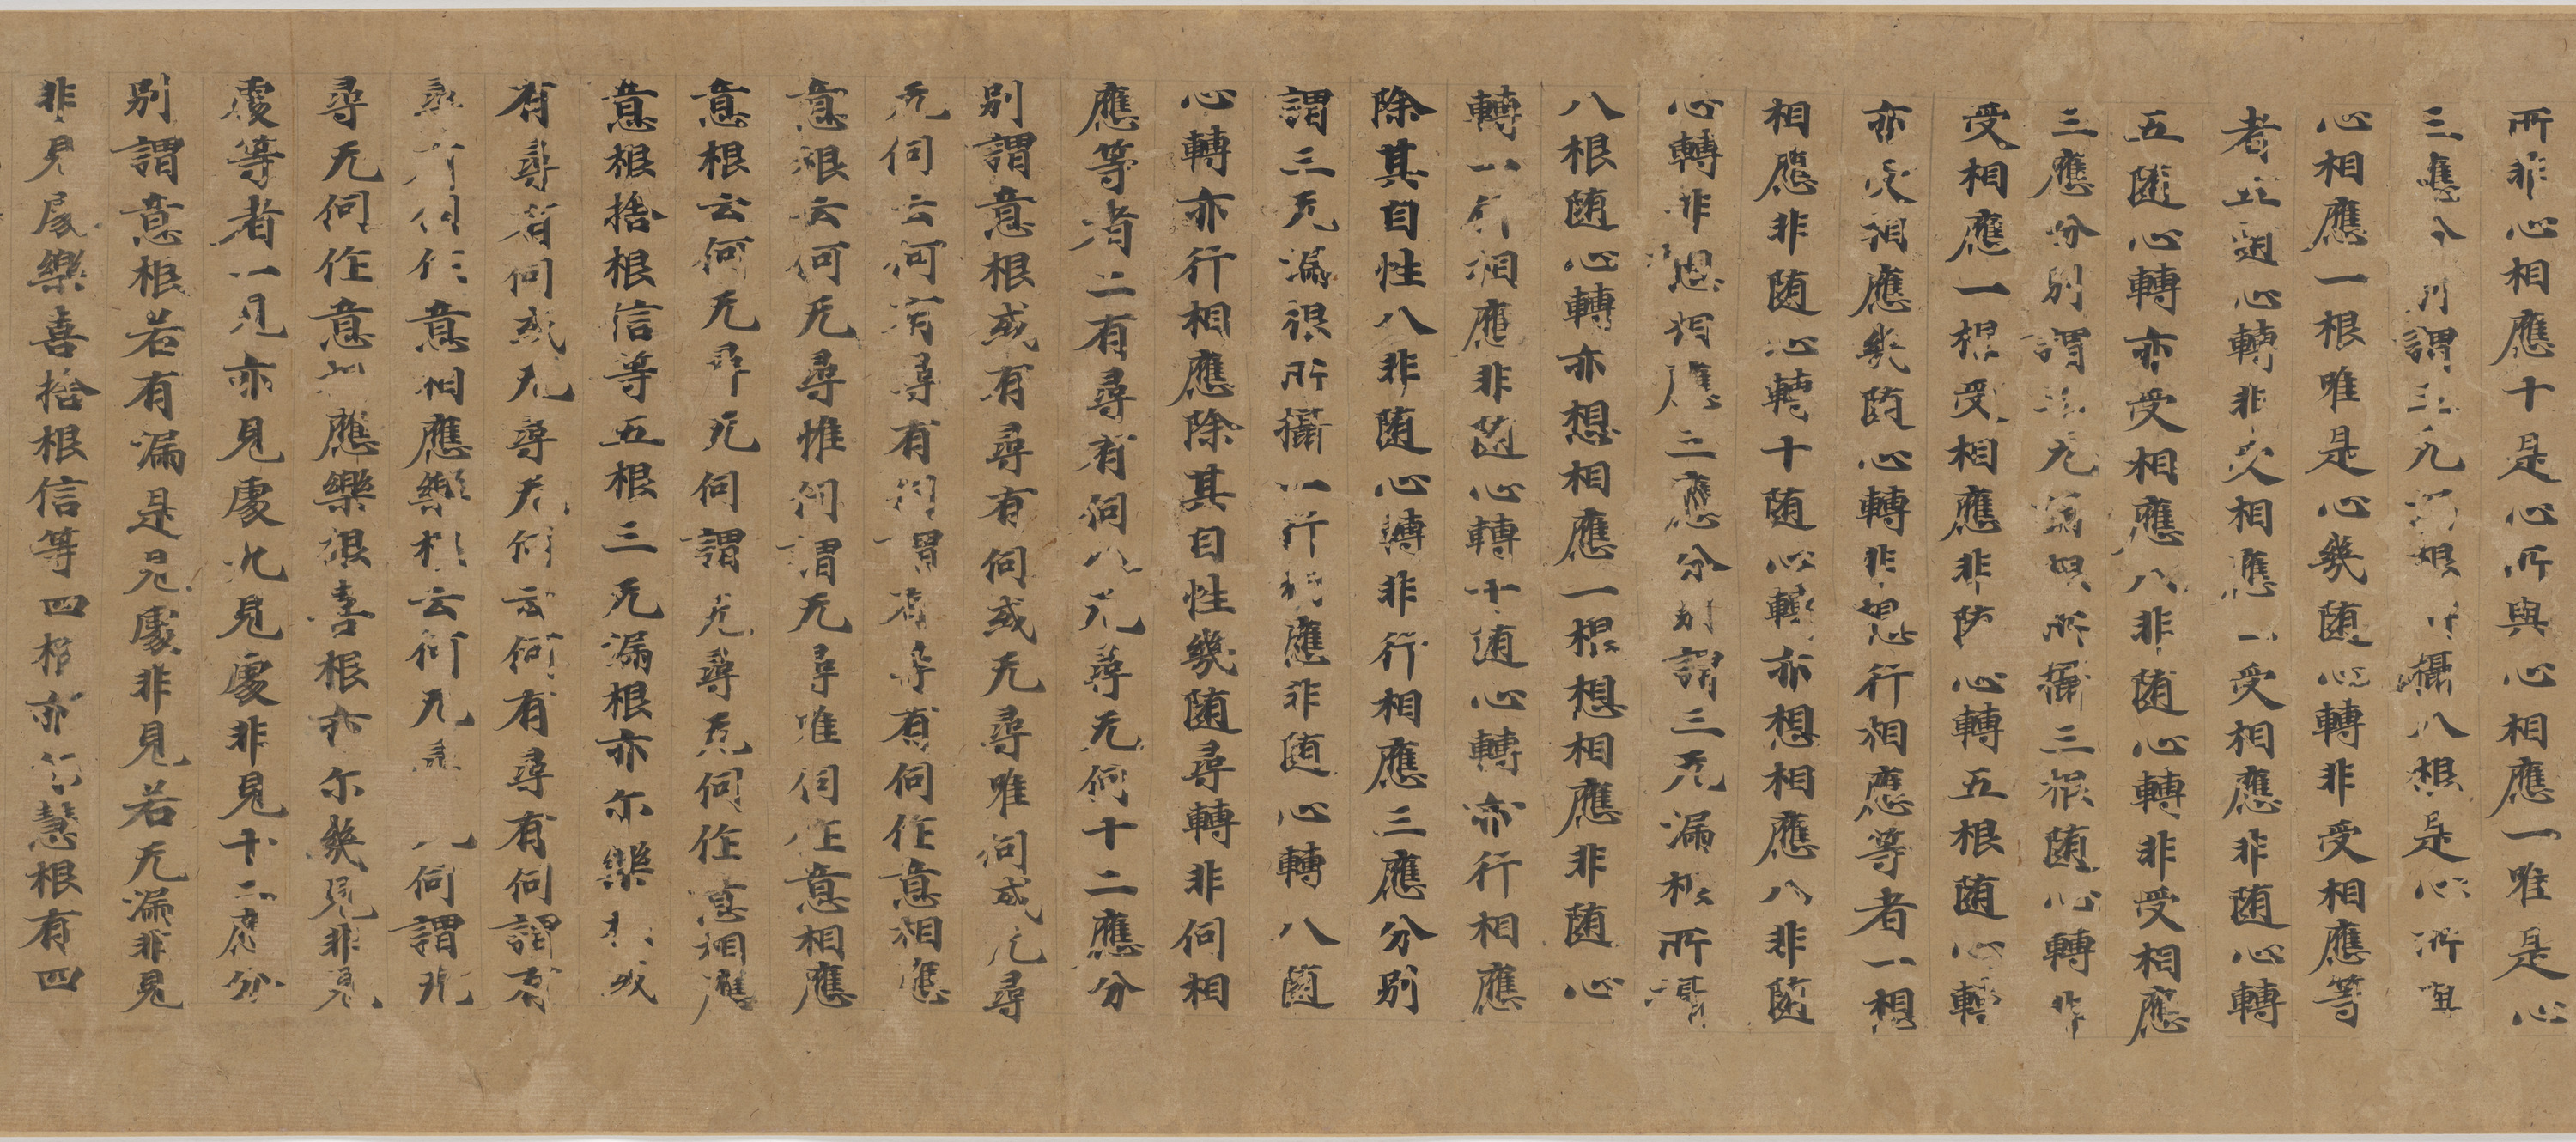 所非心相應十是心所與心相應一唯是心
三應分別謂三无漏根所攝八根是心所與
心相應一根唯是心幾隨心轉非受相應等
者五隨心轉非受相應一受相應非隨心轉
五隨心轉亦受相應八非隨心轉非受相應
三應分別謂三无漏根所攝三根隨心轉非
受相應一根受相應非隨心轉五根隨心轉
亦受相應幾隨心轉非想行相應等者一想
相應非隨心轉十隨心轉亦想相應八非隨
心轉非想相應三應分別謂三无漏根所攝
八根隨心轉亦想相應一根想相應非隨心
轉一行相應非隨心轉十隨心轉亦行相應
除其自性八非隨心轉非行相應三應分別
謂三无漏根所攝一行相應非隨心轉八隨
心轉亦行相應除其自性幾隨尋轉非伺相
應等者二有尋有伺八无尋无伺十二應分
別謂意根或有尋有伺或无尋唯伺或无尋
无伺云何有尋有伺謂有尋有伺作意相應
意根云何无尋惟伺謂无尋唯伺作意相應
意根云何无尋无伺謂无尋无伺作意相應
意根捨根信等五根三无漏根亦尒樂根或
有尋有伺或无尋无伺云何有尋有伺謂有
尋有伺作意相應樂根云何无尋无伺謂无
尋无伺作意相應樂根喜根亦尒幾見非見
處等者一見亦見處九見處非見十二應分
別謂意根若有漏是見處非見若无漏非見
非見處樂喜捨根信等四根亦尒慧根有四